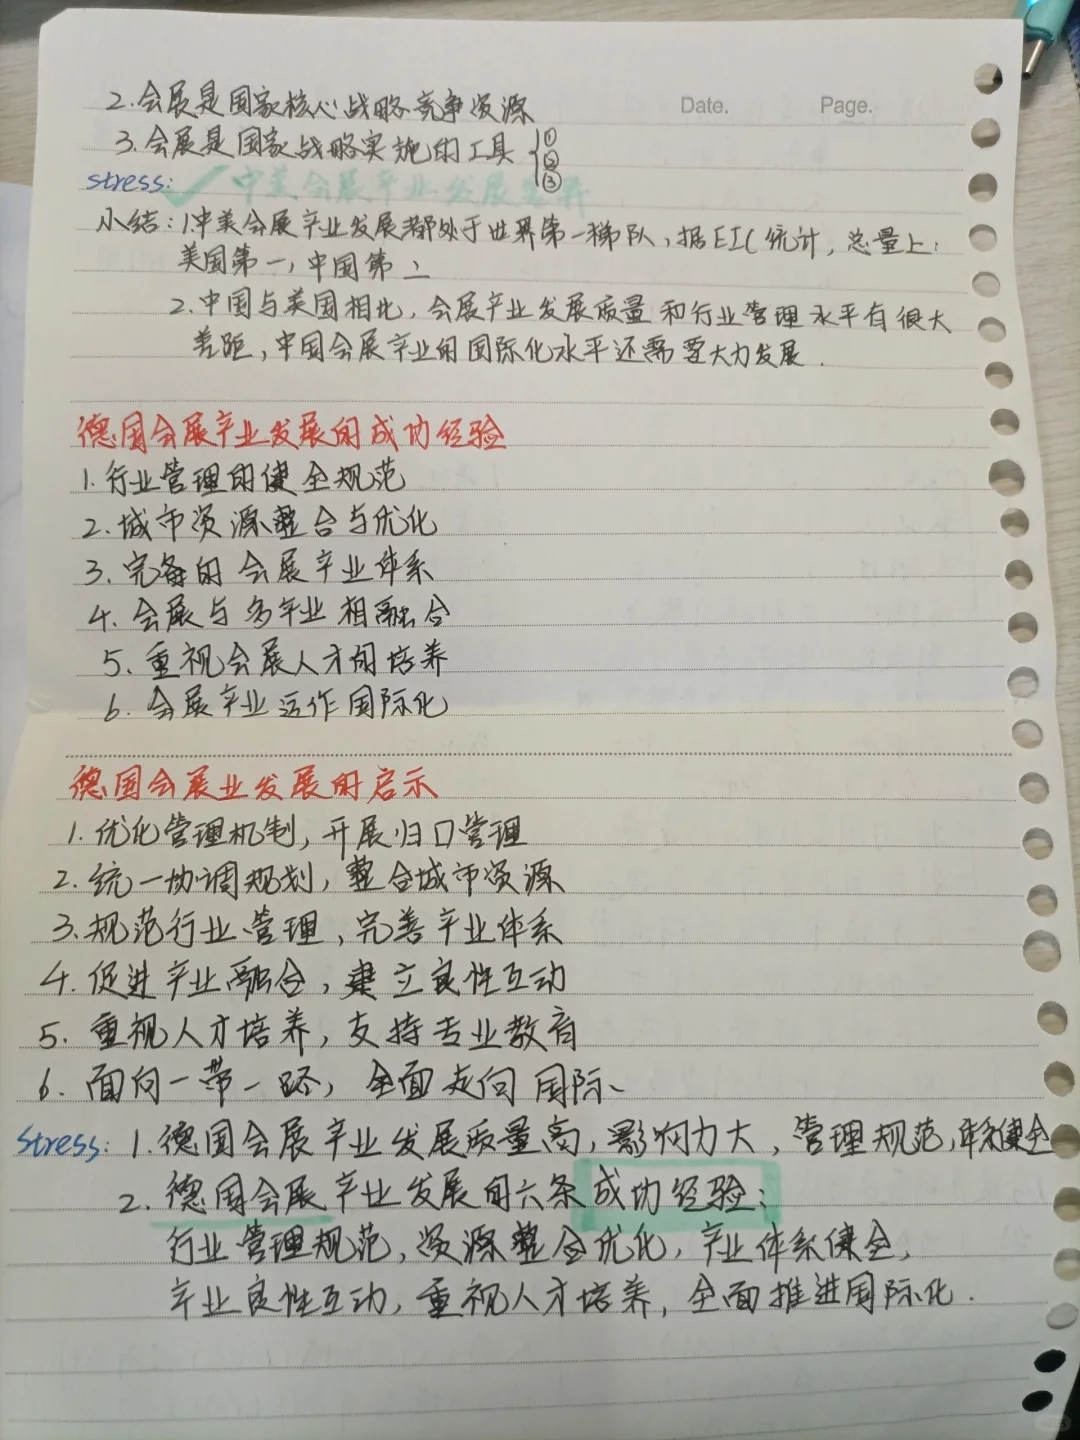 Date. Page.
2.会展是国家核心战略竞争资源
3.会展是国家战略实施的工具{①
②
③
stress: ✓中美会展产业发展差异
小结:1.中美会展产业发展都处于世界第一梯队,据EIC统计,总量上:
美国第一,中国第二
2.中国与美国相比,会展产业发展质量和行业管理水平有很大
差距,中国会展产业的国际化水平还需要大力发展.
德国会展产业发展的成功经验
1.行业管理的健全规范
2.城市资源整合与优化
3.完备的会展产业体系
4.会展与多产业相融合
5.重视会展人才的培养
6.会展产业运作国际化
德国会展业发展的启示
1.优化管理机制,开展归口管理
2.统一协调规划,整合城市资源
3.规范行业管理,完善产业体系
4.促进产业融合,建立良性互动
5.重视人才培养,支持专业教育
6.面向一带一路,全面走向国际、
stress: 1.德国会展产业发展质量高,影响力大,管理规范,体系健全
2.德国会展产业发展的六条成功经验:
行业管理规范,资源整合优化,产业体系健全,
产业良性互动,重视人才培养,全面推进国际化.